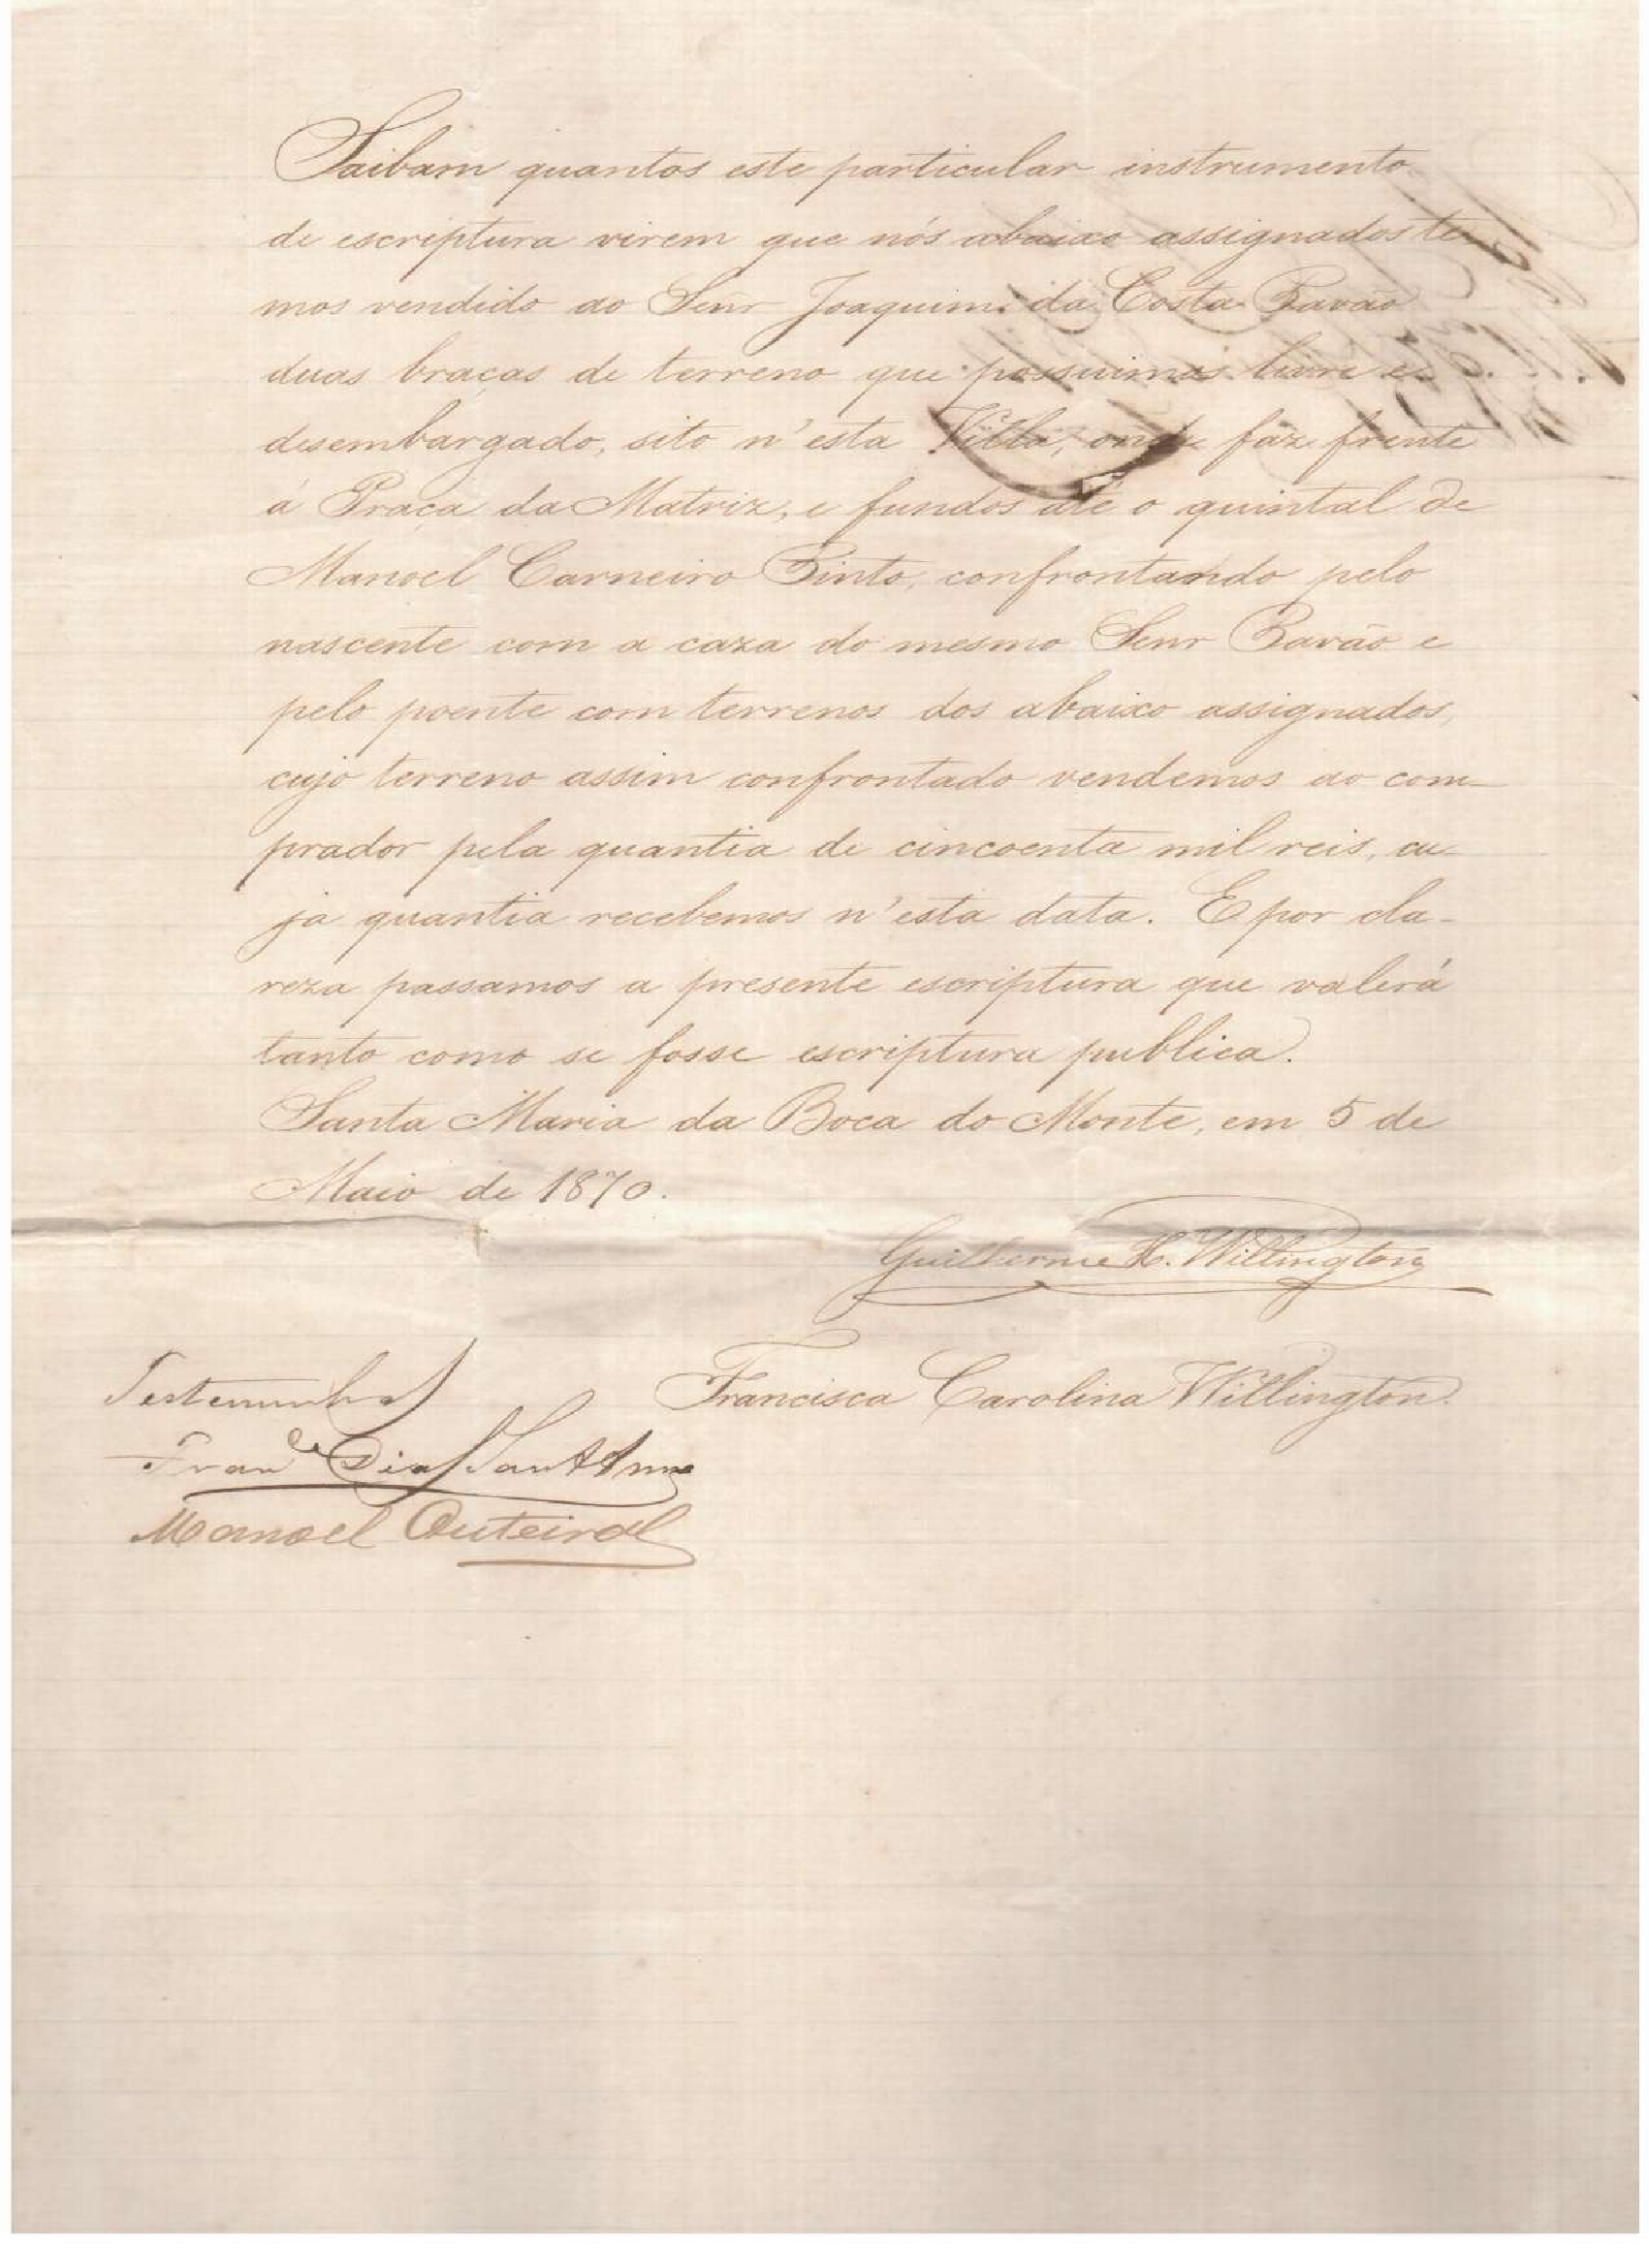 Saibam quantos este particular instrumento
de escriptura virem que nós abaixo assignados te-
mos vendido ao Senr Joaquim da Costa Pavão
duas braças de terreno que possuimos livre e
desembargado, sito n'esta Villa, onde faz frente
á Praça da Matriz, e fundos até o quintal de
Manoel Carneiro Pinto, confrontando pelo
nascente com a caza do mesmo Senr Pavão e
pelo poente com terrenos dos abaixo assignados,
cujo terreno assim confrontado vendemos ao com-
prador pela quantia de cincoenta mil reis, cu-
ja quantia recebemos n'esta data. E por cla-
reza passamos a presente escriptura que valerá
tanto como se fosse escriptura publica.
Santa Maria da Boca do Monte, em 5 de
Maio de 1870.
Guilherme H. Willington
Francisca Carolina Willington.
Testemunhas
Franco Dias Sant Anna
Manoel Outeiral